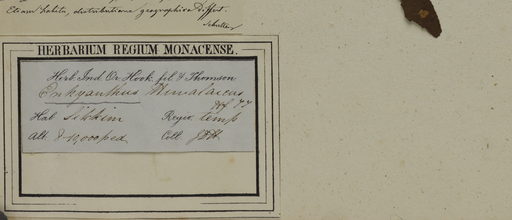 Etiam habitu, distributione geographica differt.
Schultes
HERBARIUM REGIUM MONACENSE.
Herb. Ind. Or. Hook. fil. & Thomson
Enkyanthus Himalaicus
Hf. & T
Hab. Sikkim Regio temp
Alt. 8-10,000 ped. Coll. JDH